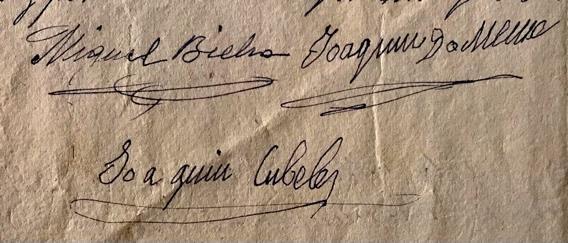 Miguel Bielsa Joaquin Domenec
Joaquin Cubeles